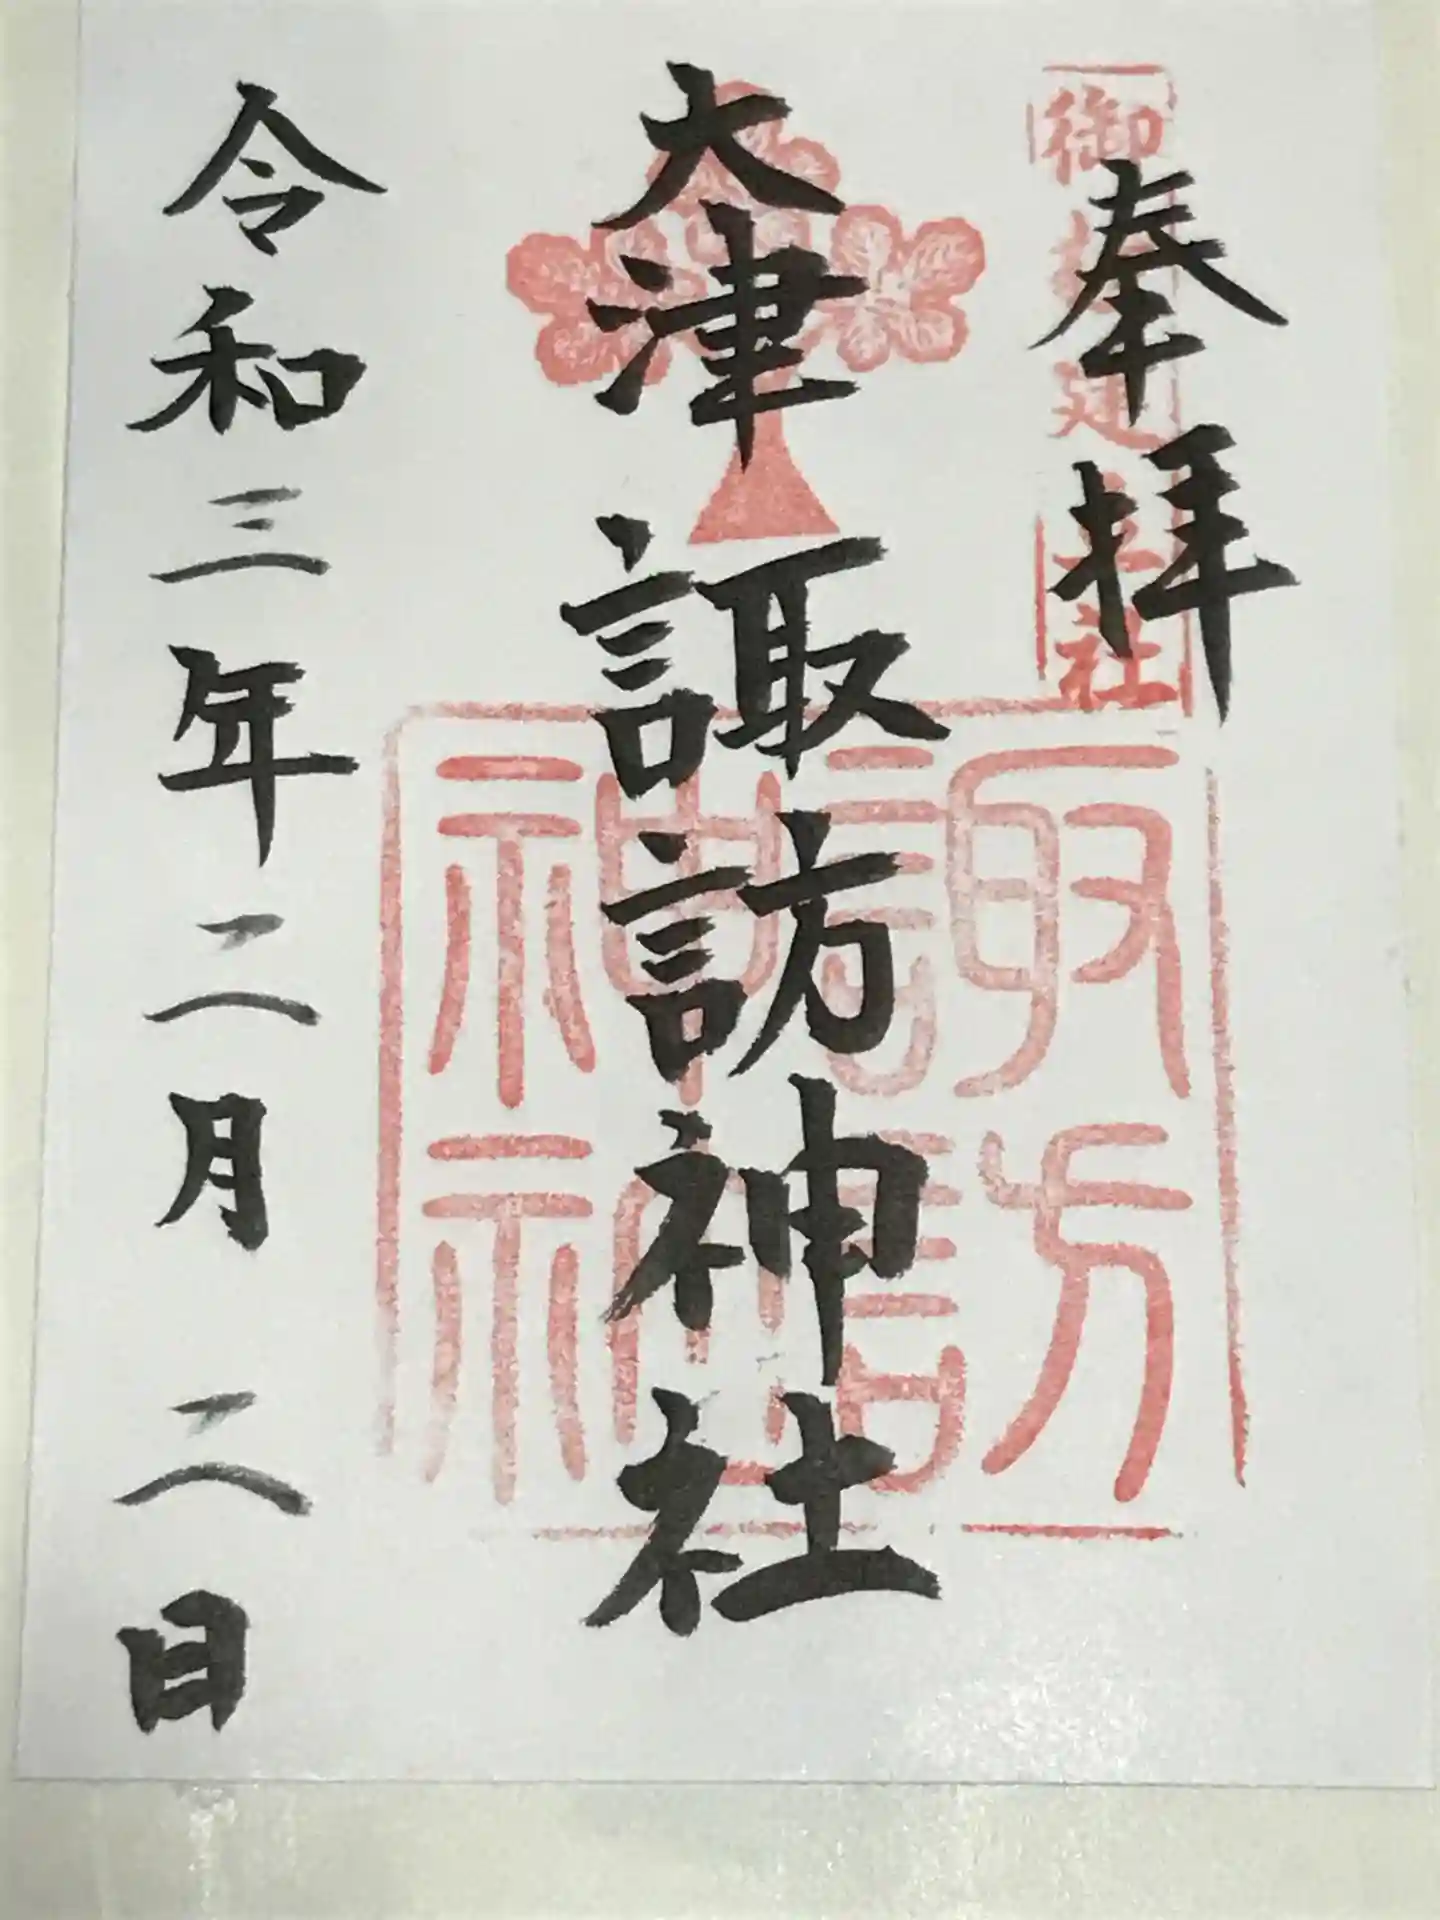 奉拝
大津諏訪神社
諏訪
神社
令和三年二月二日